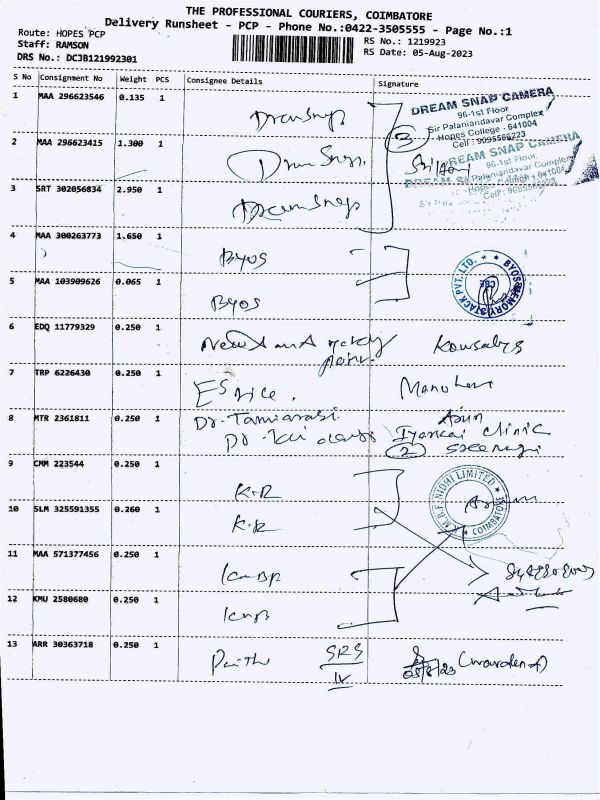 THE PROFESSIONAL COURIERS, COIMBATORE
Delivery Runsheet - PCP - Phone No.:0422-3505555 - Page No.:1
Route: HOPES PCP
RS No.: 1219923
Staff: RAMSON
RS Date: 05-Aug-2023
DRS No.: DCJB121992301
S No Consignment No Weight PCS Consignee Details Signature
1 MAA 296623546 0.135 1 Dreamsnap
DREAM SNAP CAMERA
96-1st Floor
Sir Palaniandavar Complex
Hopes College - 641004
Cell : 9095566223
3
2 MAA 296623415 1.300 1 Dream Snap
DREAM SNAP CAMERA
96-1st Floor
Sir Palaniandavar Complex
3 SRT 302056834 2.950 1 DreamSnap
4 MAA 300263773 1.650 1 Byos
BYOS MEMORYSTACK PVT. LTD.
CBE
5 MAA 103909626 0.065 1 Byos
6 EDQ 11779329 0.250 1 New Kousalya
7 TRP 6226430 0.250 1 Manohar
8 MTR 2361811 0.250 1 Dr. Tamilarasi Arun
Dr. Iyarkai Clinic
2
9 CMM 223544 0.250 1 K.R
M.B.F. NIDHI LIMITED
COIMBATORE
10 SLM 325591355 0.260 1 K.R
11 MAA 571377456 0.250 1
12 KMU 2580680 0.250 1
13 ARR 30363718 0.250 1 SRS (warden)
IV 05/8/23